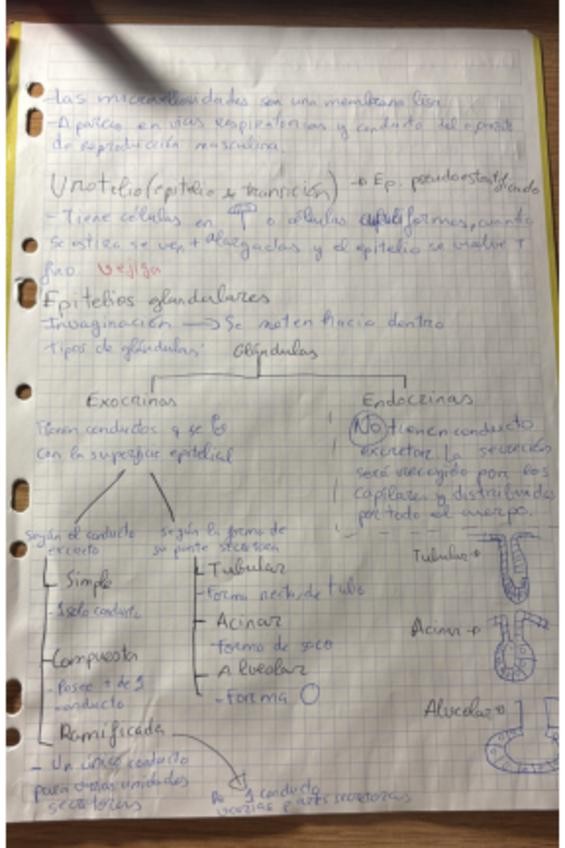 -Las microvellosidades son una membrana lisa
-Aparece en vías respiratorias y conducto del aparato
de reproducción masculina.
Urotelio (epitelio de transición) → Ep. pseudoestratificado
-Tiene células en o células cupuliformes, cuando
se estira se ven + alargadas y el epitelio se vuelve +
fino vejiga
Epitelios glandulares
Invaginación → Se meten hacia dentro
tipos de glándulas: Glándulas
Exocrinas
Endocrinas
Tienen conductos q se
con la superficie epitelial
No tienen conducto
excretor la secreción
será recogido por los
capilares y distribuidas
por todo el cuerpo.
según el conducto
excretor
según la forma de
su parte secretora
Simple
- 1 solo conducto
Compuesta
- Posee + de 1
conducto
Ramificada
- Un único conducto
para varias unidades
secretoras
Tubular
-Forma recta, de tubo
Acinar
-forma de saco
Alveolar
-Forma O
1 conducto
varias partes secretoras
Tubular →
Acinar →
Alveolar →